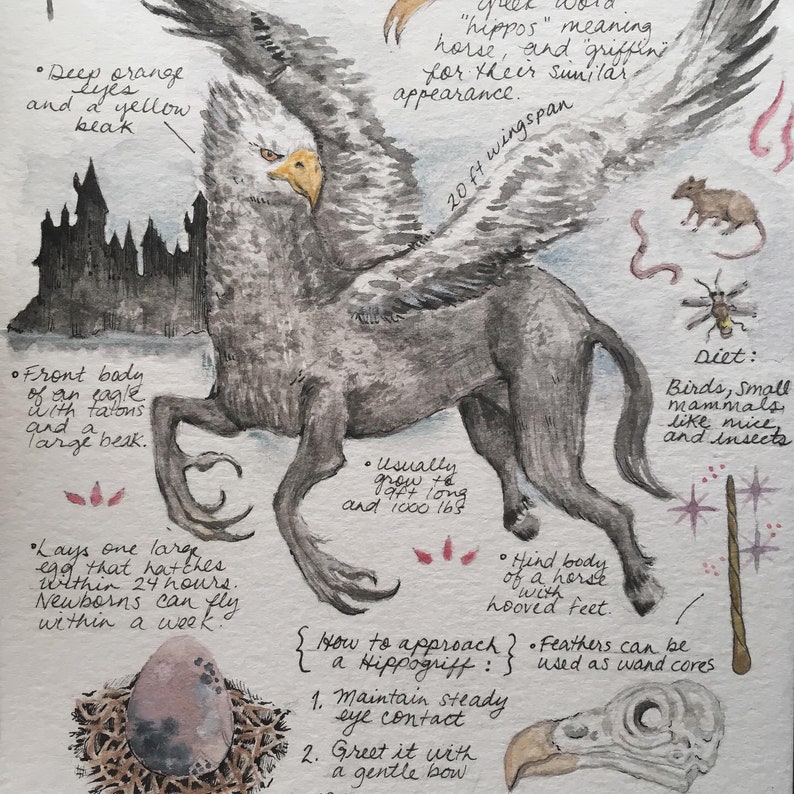 Greek word
"hippos" meaning
horse, and "griffin"
for their similar
appearance.
• Deep orange
eyes
and a yellow
beak
20 ft wingspan
Diet:
Birds, small
mammals,
like mice,
and insects
• Front body
of an eagle
with talons
and a
large beak.
• Usually
grow to
9ft long
and 1000 lbs
• Lays one large
egg that hatches
within 24 hours.
Newborns can fly
within a week.
• Hind body
of a horse
with
hooved feet.
• Feathers can be
used as wand cores
{ How to approach }
a Hippogriff :
1. Maintain steady
eye contact
2. Greet it with
a gentle bow